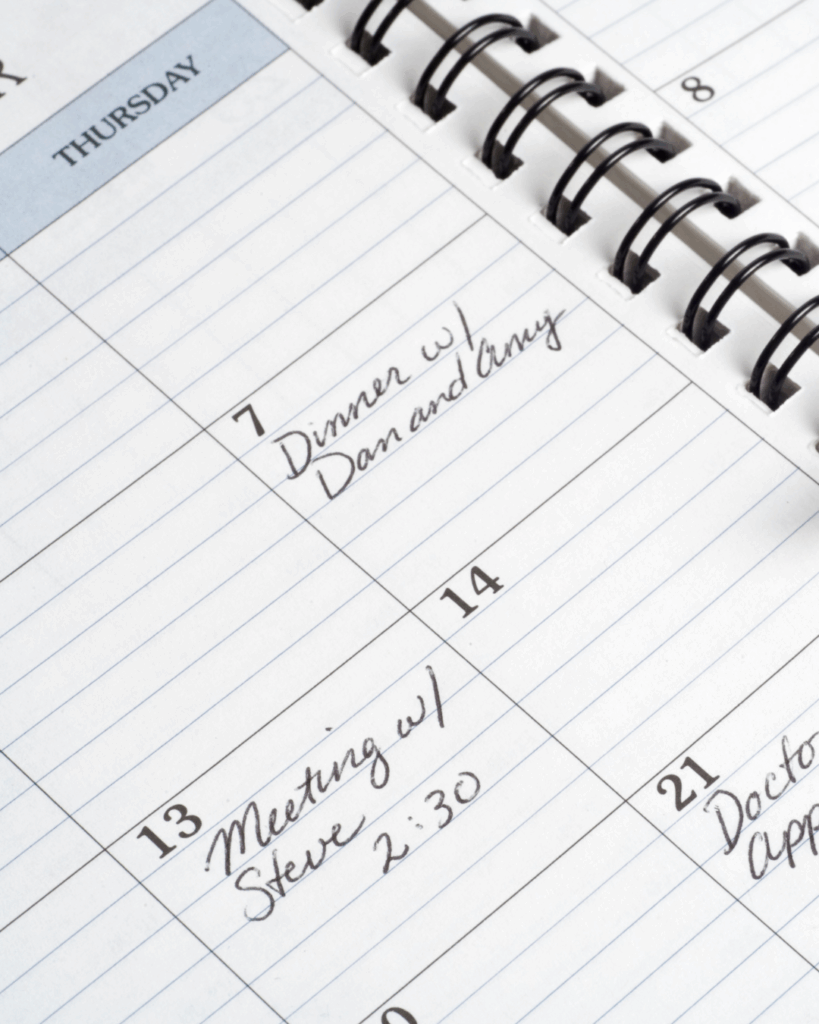 THURSDAY
8
7
Dinner w/
Dan and Amy
14
13
Meeting w/
Steve 2:30
21